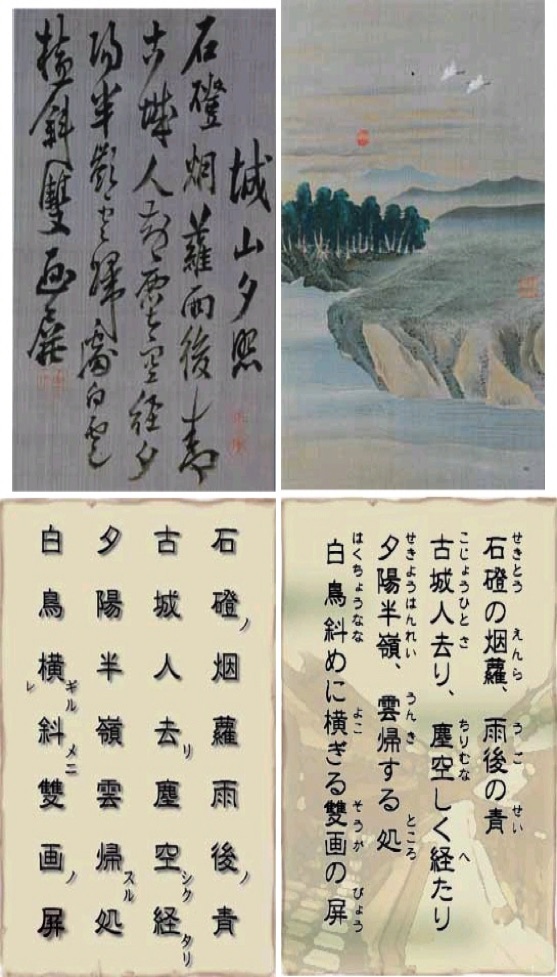 城山夕照
石磴烟蘿雨後青
古城人去塵空経夕
陽半嶺雲帰處白鳥
横斜雙画屏
石磴ノ烟蘿雨後ノ青
古城人去リ塵空シク経タリ
夕陽半嶺雲帰スル処
白鳥横ギルレ斜メニ雙画ノ屏
せきとう えんら うご せい
石磴の烟蘿、雨後の青
こじょうひと さ ちりむな へ
古城人去り、塵空しく経たり
せきようはんれい うんき ところ
夕陽半嶺、雲帰する処
はくちょうなな よこ そうが びょう
白鳥斜めに横ぎる雙画の屏